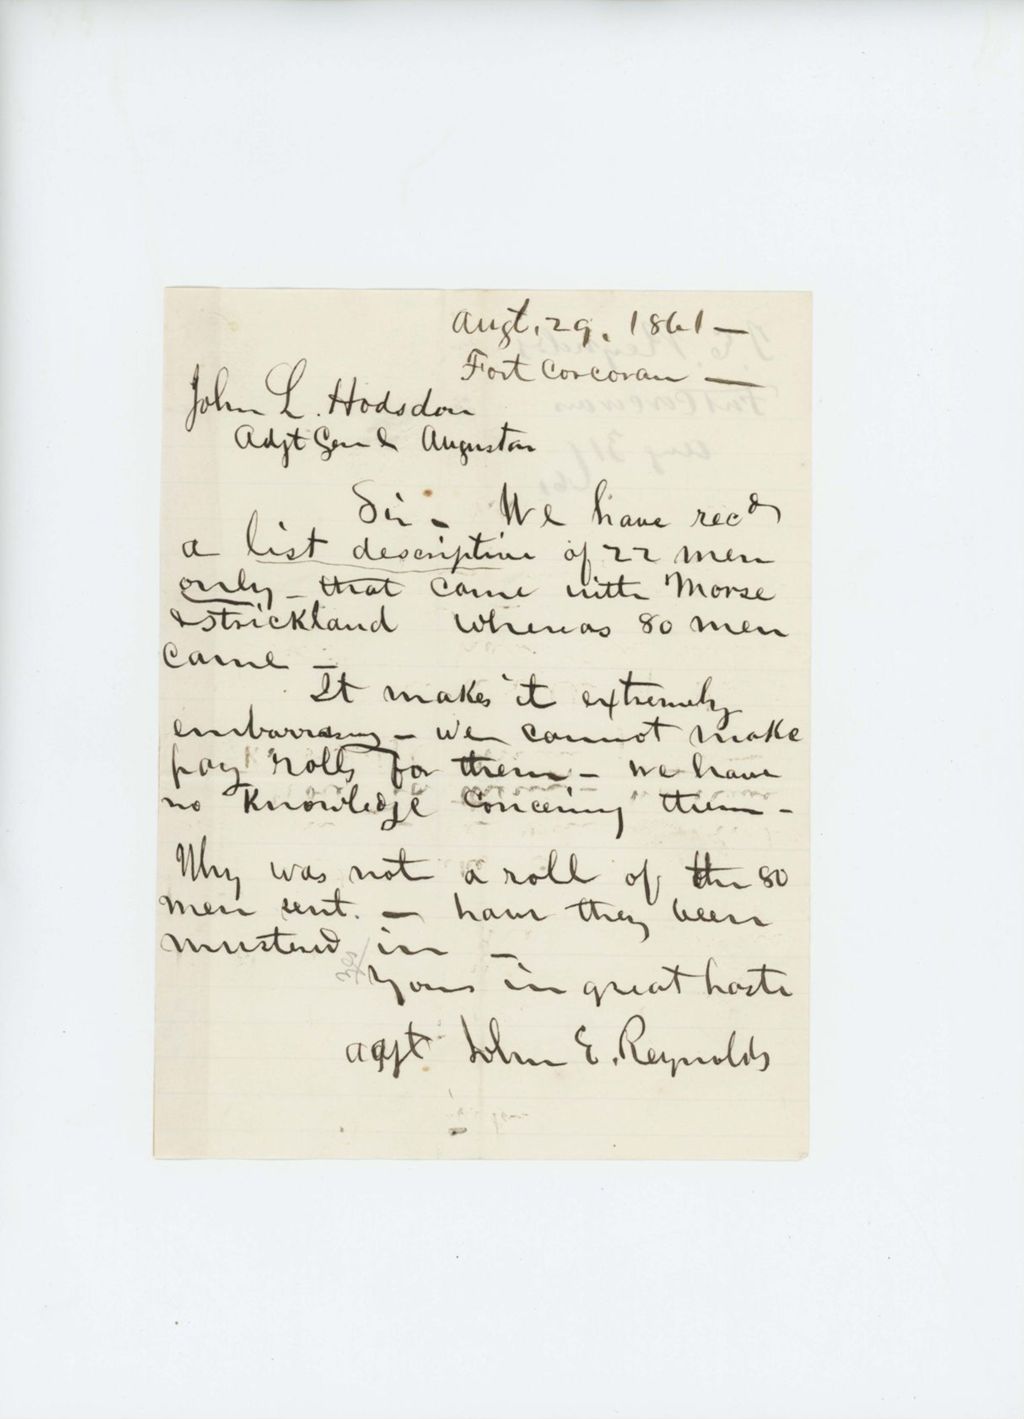 Augt. 29. 1861 —
Fort Corcoran —
John L. Hodsdon
Adjt Genl Augusta
Sir - We have recd
a list descriptive of 22 men
only - that came with Morse
& Strickland whereas 80 men
came -
It makes it extremely
embarrasing - We cannot make
pay rolls for them - we have
no knowledge concerning them -
Why was not a roll of the 80
men sent. - have they been
mustered in -
Yours in great haste
adjt John E. Reynolds